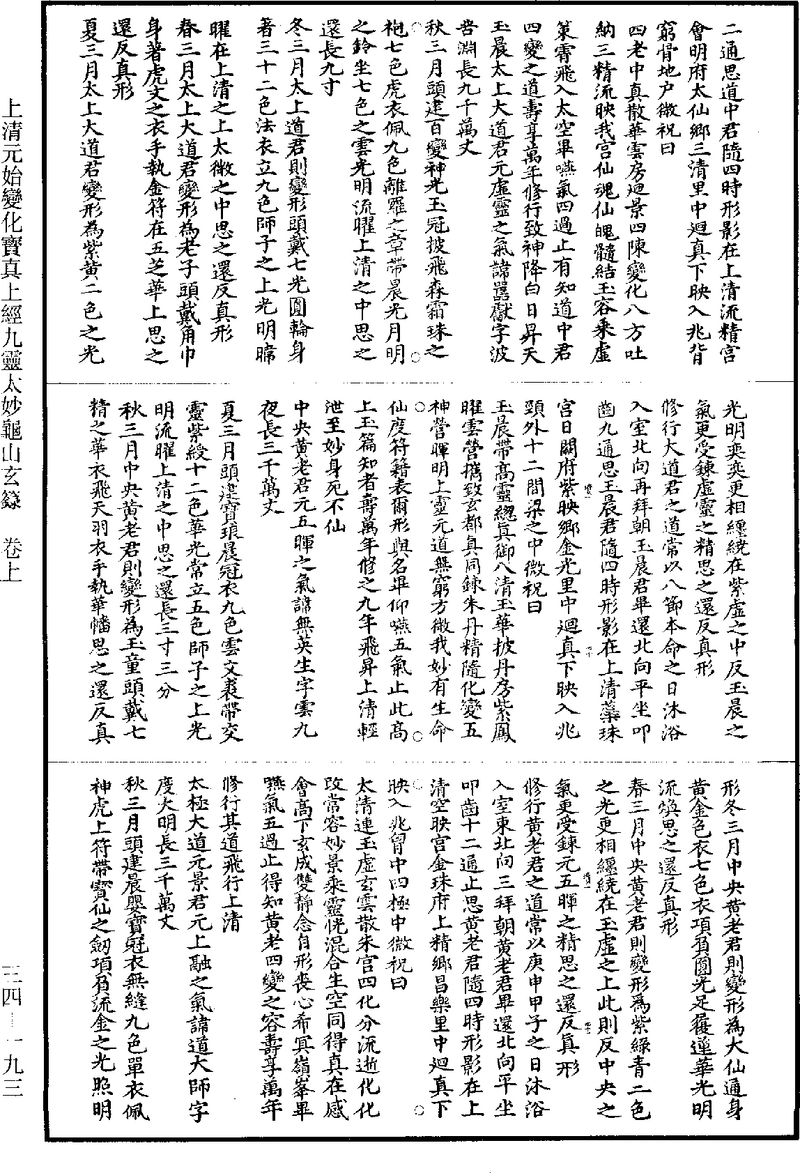 二通思道中君隨四時形影在上清流精宮
會明府太仙鄉三清里中迴真下映入兆背
窮骨地户微祝曰
四老中真散華雲房迴景四陳變化八方吐
納三精流映我宮仙魂仙魄髓結玉容乘虛
策霄飛入太空畢嚥氣四過止有知道中君
四變之道壽享萬年修行致神降白日昇天
玉晨太上大道君元虛靈之氣諱字波
峇淵長九千萬丈
秋三月頭建百變神光玉冠披飛森霜珠之
袍七色虎衣佩九色離羅之章帶晨光月明
之鈴坐七色之雲光明流曜上清之中思之
還長九寸
冬三月太上道君則變形頭戴七光圓輪身
著三十二色法衣立九色師子之上光明
曜在上清之上太微之中思之還反真形
春三月太上大道君變形為老子頭戴角巾
身著虎文之衣手執金符在五芝華上思之
還反真形
夏三月太上大道君變形為紫黃二色之光
光明奕奕更相纏繞在紫虛之中反玉晨之
氣更受鍊虛靈之精思之還反真形
修行大道君之道常以八節本命之日沐浴
入室北向再拜朝玉晨君畢還北向平坐叩
齒九通思玉晨君隨四時形影在上清蘂珠
宮日闕府紫映鄉金光里中迴真下映入兆
頸外十二間梁之中微祝曰
玉晨帶高靈總真御八清玉華披丹房紫鳳
曜雲營攜致玄都真同鍊朱丹精隨化變五
神營暉明上靈元道無窮方微我妙有生命
仙度符籍表爾形與名畢仰嚥五氣止此高
上玉篇知者壽萬年修之九年飛昇上清輕
泄至妙身死不仙
中央黃老君元五暉之氣諱無英生字雲九
夜長三千萬丈
夏三月頭建寶琅晨冠衣九色雲文裘帶交
靈紫綬十二色華光常立五色師子之上光
明流曜上清之中思之還長三寸三分
秋三月中央黃老君則變形為玉童頭戴七
精之華衣飛天羽衣手執華幡思之還反真
形冬三月中央黃老君則變形為大仙通身
黃金色衣七色衣項負圓光足履蓮華光明
流煥思之還反真形
春三月中央黃老君則變形為紫綠青二色
之光更相纏繞在玉虛之上此則反中央之
氣更受鍊元五暉之精思之還反真形
修行黃老君之道常以庚申甲子之日沐浴
入室東北向三拜朝黃老君畢還北向平坐
叩齒十二通止思黃老君隨四時形影在上
清空映宮金珠府上精鄉昌樂里中迴真下
映入兆胷中四極中微祝曰
太清連玉虛玄雲散朱宮四化分流逝化化
改常容妙景乘靈恍混合生空同得真在感
會高下玄成雙靜念自形喪心希冥嶺峯畢
嚥氣五過止得知黃老四變之容壽享萬年
修行其道飛行上清
太極大道元景君元上融之氣諱道大師字
度大明長三千萬丈
秋三月頭建晨嬰寶冠衣無縫九色單衣佩
神虎上符帶寶仙之劒項負流金之光照明
上清元始變化寶真上經九靈太妙龜山玄籙 卷上
三四—一九三